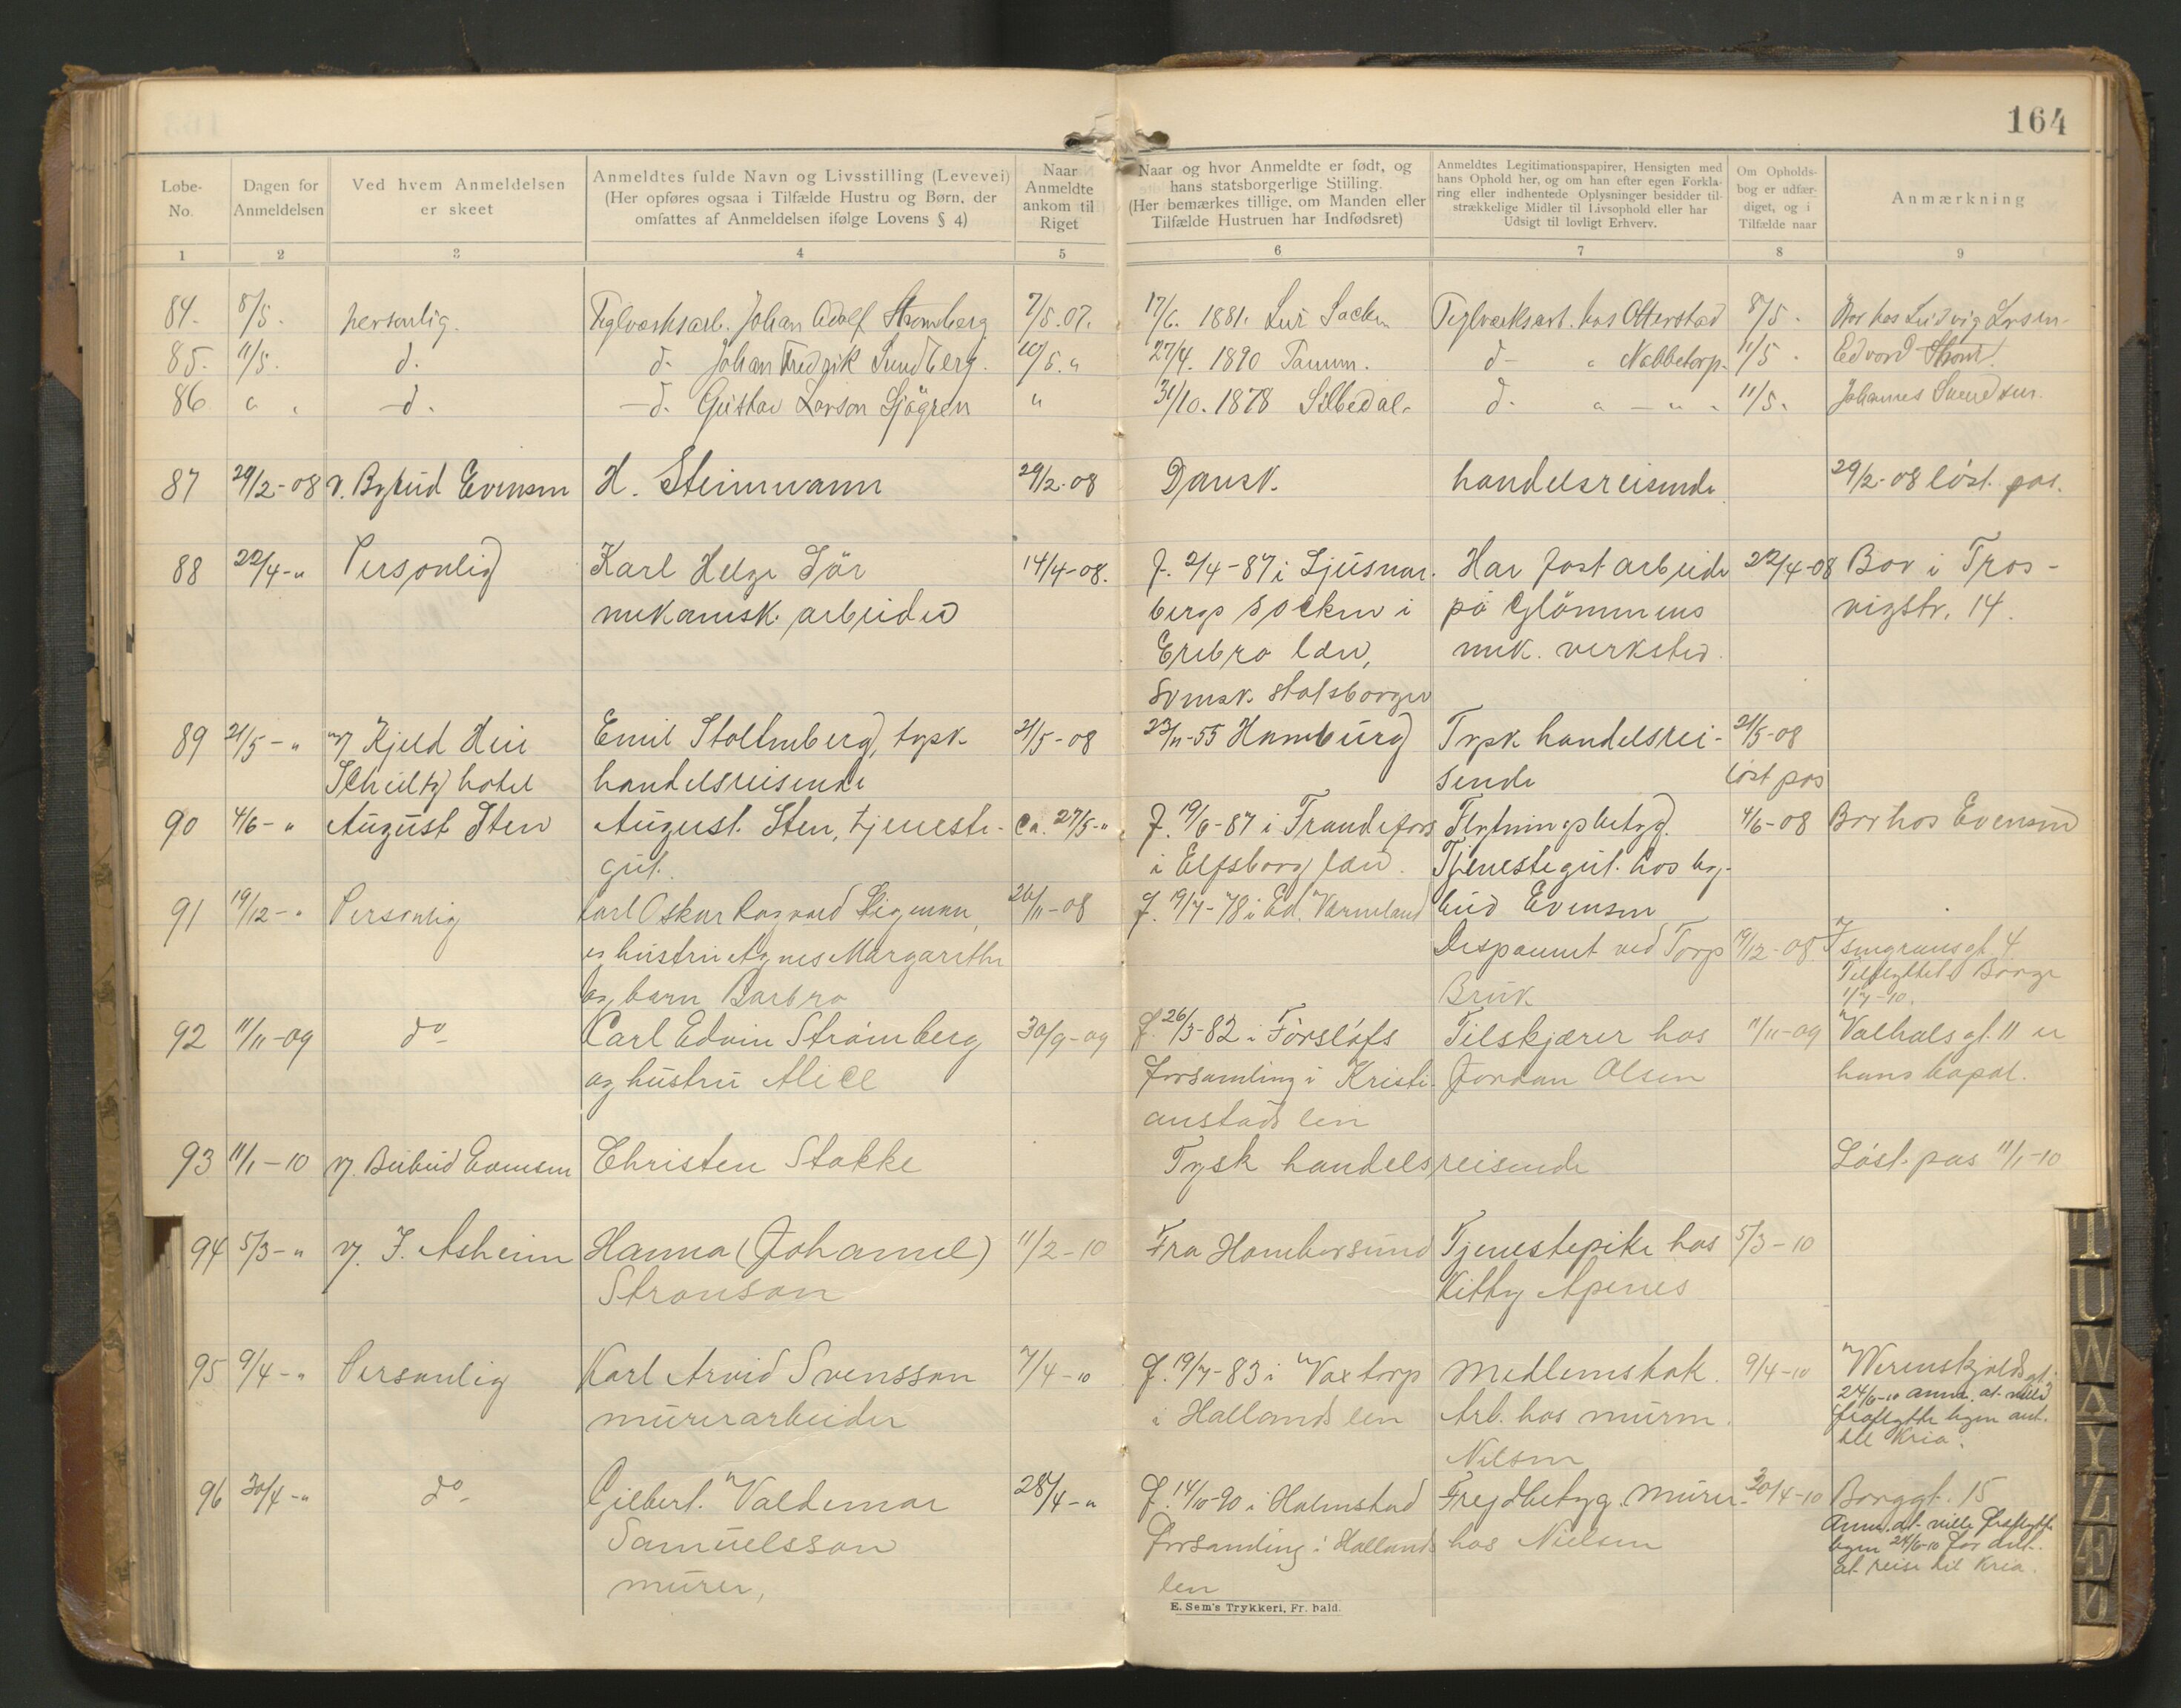 164
Løbe-
No.
Dagen for
Anmeldelsen
Ved hvem Anmeldelsen
er skeet
Anmeldtes fulde Navn og Livsstilling (Levevei)
(Her opføres ogsaa i Tilfælde Hustru og Børn, der
omfattes af Anmeldelsen ifølge Lovens § 4)
Naar
Anmeldte
ankom til
Riget
Naar og hvor Anmeldte er født, og
hans statsborgerlige Stilling.
(Her bemærkes tillige, om Manden eller
Tilfælde Hustruen har Indfødsret)
Anmeldtes Legitimationspapirer, Hensigten med
hans Ophold her, og om han efter egen Forkla-
ring eller indhentede Oplysninger besidder til-
strækkelige Midler til Livsophold eller har
Udsigt til lovligt Erhverv.
Om Opholds-
bog er udfær-
diget, og i
Tilfælde naar
Anmærkning
1 2 3 4 5 6 7 8 9
84. 8/5. personlig. Teglværksarb. Johan Adolf Stromberg 7/5.07. 17/6. 1881. Lur Socken Teglværksarb. hos Otterstad 8/5. Bor hos Ludvig Larsen
85. 11/5. d. d. Johan Fredrik Sundberg. 10/5. " 27/4. 1890 Tanum. d - " Nabbetorp. 11/5. Edvard Strøm.
86 " " -d. -d. Gustav Larson Sjögren " 31/10. 1878 Silbodal. d. " - " - 11/5. Johannes Svendsen.
87 29/2-08 v. Bybud Evensen H. Steinmann 29/2-08 Dansk. handelsreisende 29/2-08 løst pas.
88 22/4-" Personlig Karl Helge Sjör 14/4-08. f. 2/4-87 i Ljusnar- Har fast arbeide 22/4-08 Bor i Tros-
mekanisk arbeider bergs socken i på Glommens vigstr. 14.
Erebro len, mek. verksted.
Svensk statsborger
89 21/5-" v/ Kjeld Hei Emil Stoltenberg, tysk 21/5-08 23/11-55 Hamburg Tysk handelsrei- 21/5-08
Schultz hotel handelsreisende sende løst pas
90 4/6-" August Sten August Sten, tjeneste- ca. 27/5-" f. 19/6-87 i Trandefors Flytningsbetyg. 4/6-08 Bor hos Evensen
gut. i Elfsborg len. Tjenestegut hos by-
91 19/12-" Personlig Karl Oskar Ragnvald Stigman, 26/11-08 f. 19/7-78 i Ed, Vermeland bud Evensen
og hustru Agnes Margarethe Dispacnnt ved Torp 19/12-08
og barn Barbro Bruk
Tilflyttet Borge
11/7-10.
92 11/11-09 do- Carl Edvin Strömberg 30/9-09 f. 26/3-82 i Förslöfs Tilskjærer hos 11/11-09 Valhals gt. 11 er
og hustru Alice forsamling i Kristi- Jordan Olsen hans bopæl.
anstads len
93 11/1-10 v/. Beibud Evensen Christen Stokke Tysk handelsreisende Løst pas 11/1-10
94 5/3-" v/. J. Asheim Hanna (Johanne) 11/2-10 Fra Hambursund Tjenestepike hos 5/3-10
Stranson Kitty Apenes
95 9/4-" Personlig Karl Arvid Svensson 7/4-10 f. 19/7-83 i Vaxtorp Medlemsbok. 9/4-10 Werenskjolds gt.
murerarbeider i Hallands len Arb. hos murm. 24/6-10 anm. at ville
Nilsen fraflytte byen ant.
til Kria.
96 30/4-" do- Gilbert Valdemar 28/4-" f. 14/10-90 i Halmstad Frejdbetyg. Murer 30/4-10 Borggt. 15
Samuelsson forsamling i Hallands hos Nielsen Anm. at ville fraflytte
murer, len byen 24/6-10 for antl.
at reise til Kria.
E. Sem's Trykkeri, Fr. hald.
T
U
W
A
Y
Z
Æ
Ø